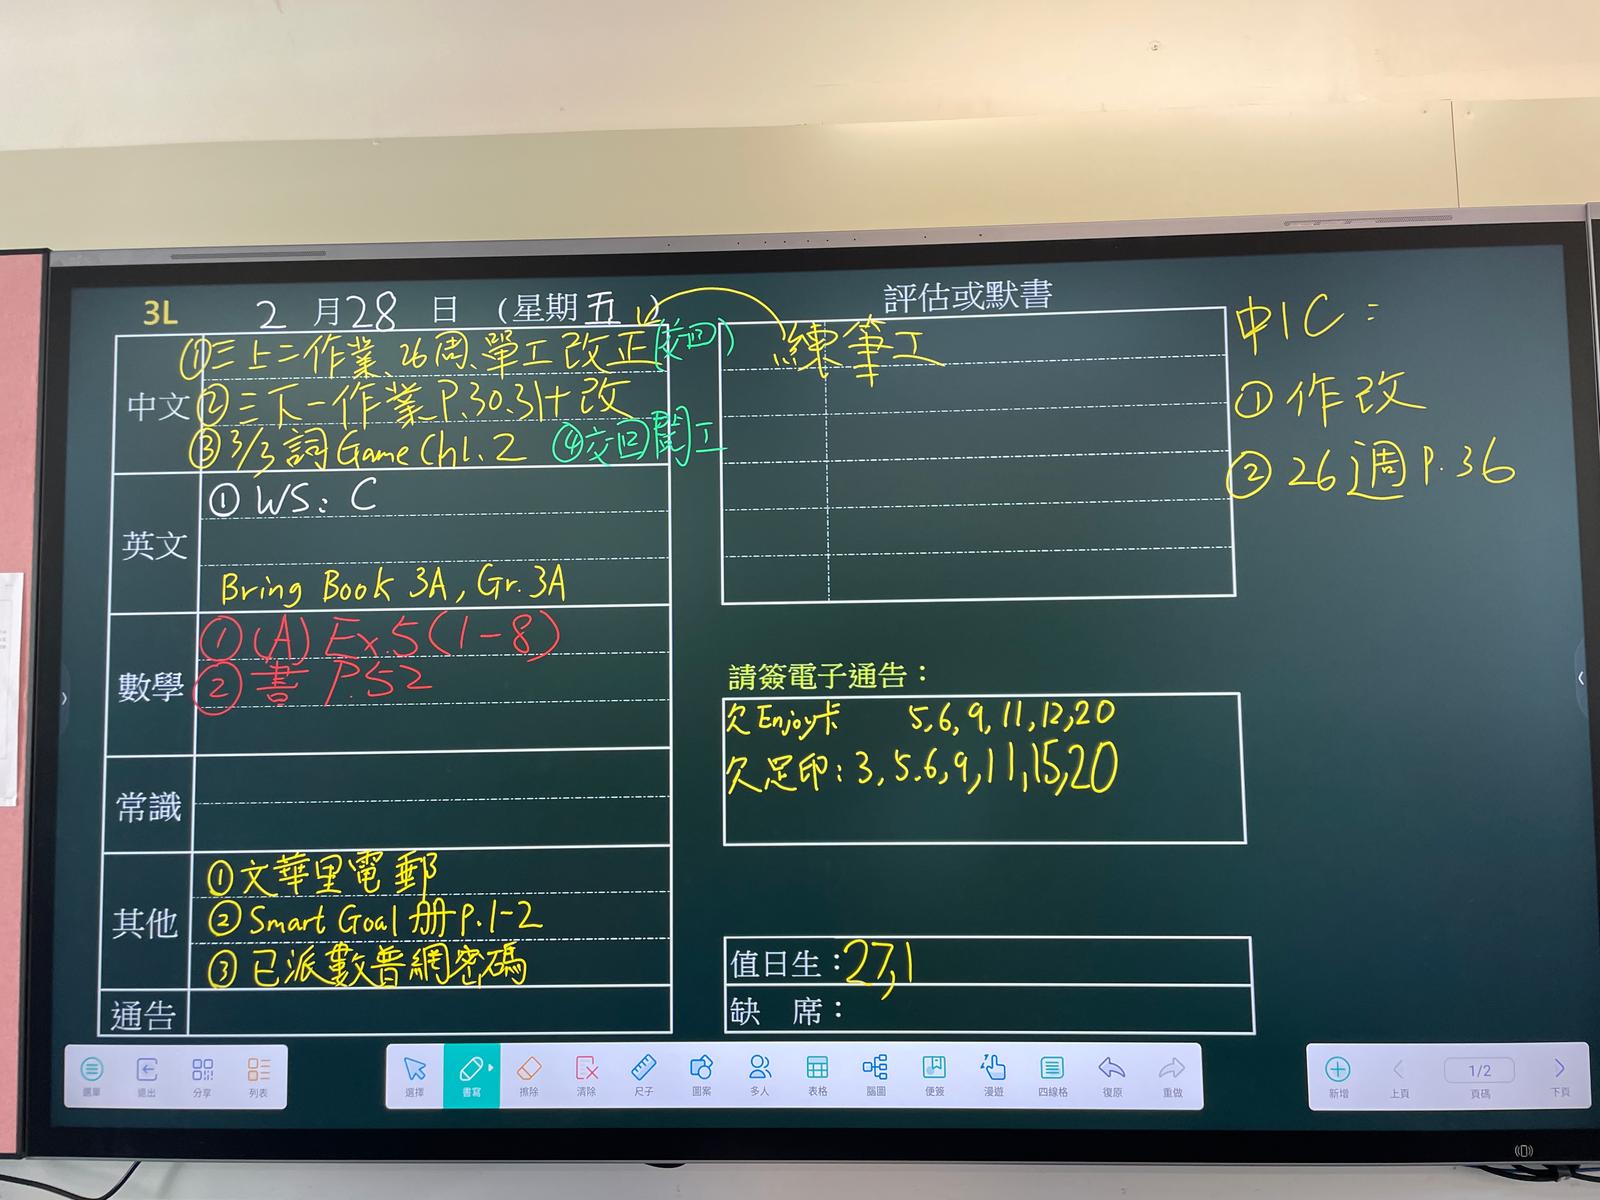 3L 2月28日 (星期五)
中文
①三上二作業、26周、單工改正(交回)
②三下一作業P.30.31+改
③3/3詞Game Ch1.2 ④交回閱工
英文
①WS: C
Bring Book 3A, Gr.3A
數學
①(A) Ex.5(1-8)
②書 P.52
常識
其他
①文華里電郵
②Smart Goal 冊 P.1-2
③已派數普網密碼
通告
評估或默書
練筆工
請簽電子通告：
欠Enjoy卡 5,6,9,11,12,20
欠足印：3,5.6,9,11,15,20
值日生：27,1
缺席：
中IC：
①作改
②26週P.36
選單 退出 分享 列表
選擇 書寫 擦除 清除 尺子 圖案 多人 表格 腦圖 便簽 漫遊 四線格 復原 重做
新增 上頁 1/2 頁碼 下頁